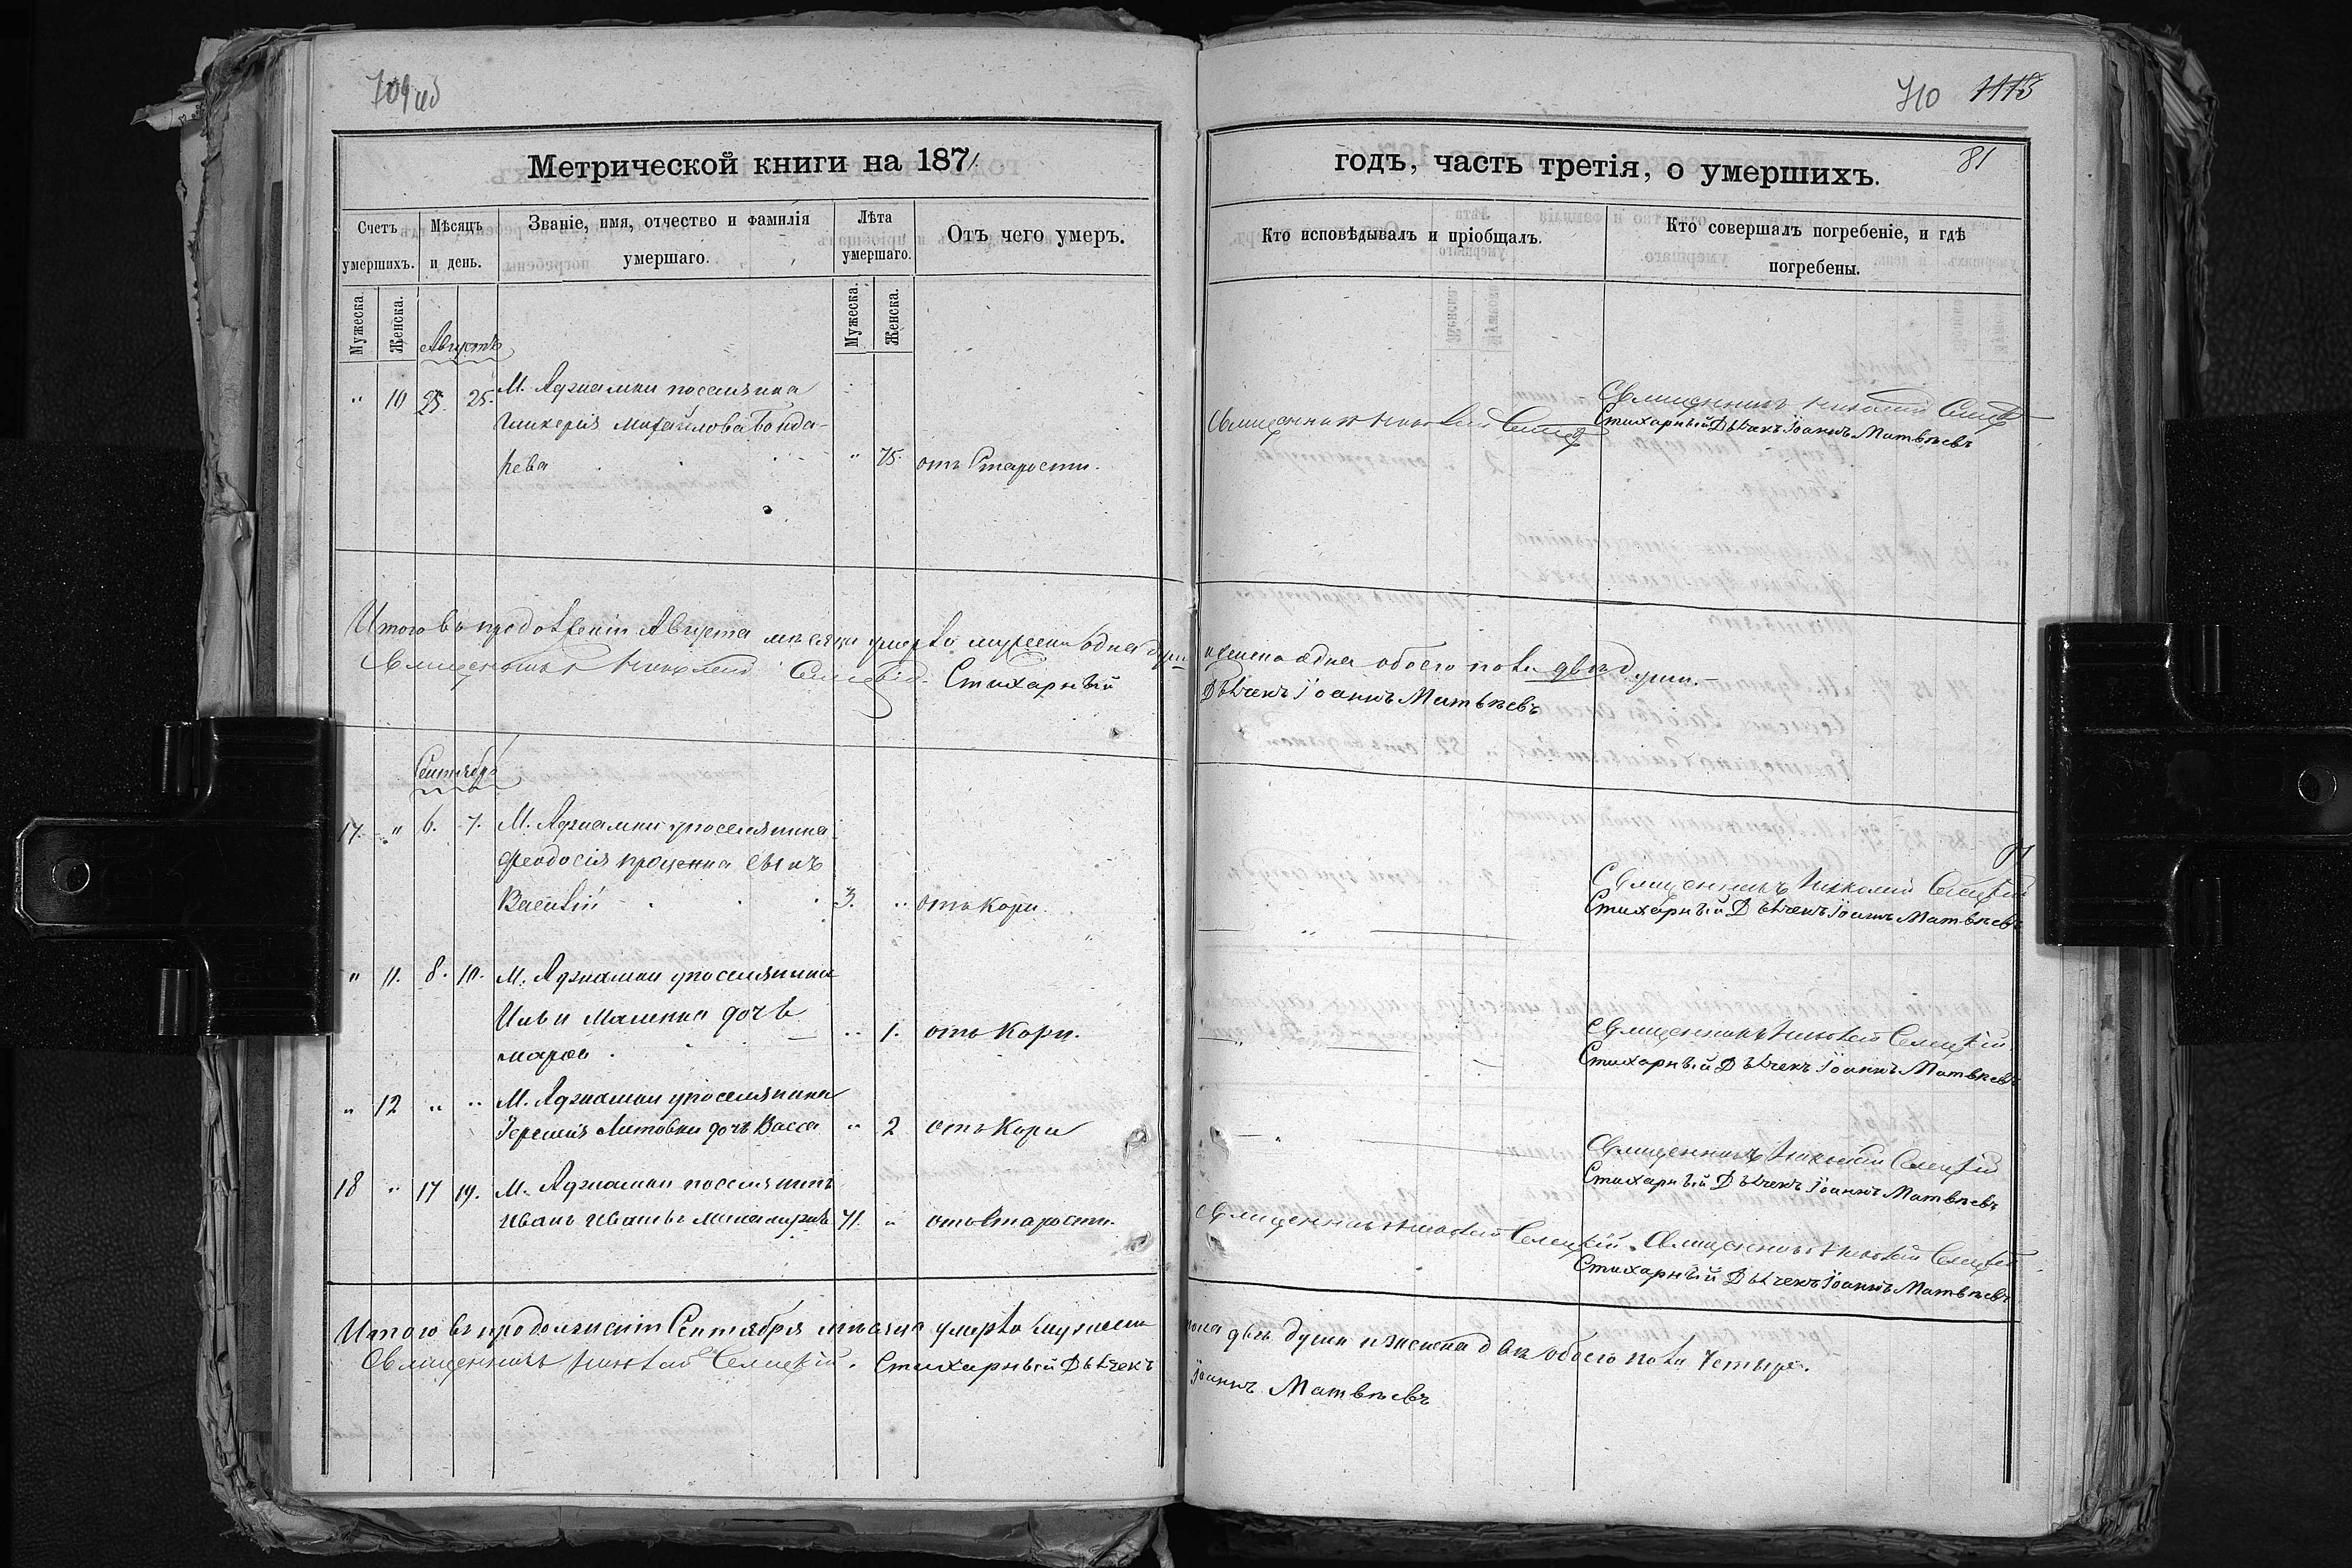 709 об
710 1118
81
Метрической книги на 1871
годъ, часть третія, о умершихъ.
Счетъ умершихъ.
Мѣсяцъ и день.
Званіе, имя, отчество и фамилія умершаго.
Лѣта умершаго.
Отъ чего умеръ.
Кто исповѣдывалъ и пріобщалъ.
Кто совершалъ погребеніе, и гдѣ погребены.
Мужеска.
Женска.
Мужеска.
Женска.
Августъ
" 10 25. М. Аджамки поселянка
Гликерія Михайлова Бонда-
рева " 75. отъ Старости.
Священникъ Николай
Священникъ Николай
Стихарный Дьячекъ Іоаннъ Матвѣевъ
Итого въ продолженіи Августа мѣсяца умерло мужеска одна душа женска одна обоего пола двѣ души.
Священникъ Николай Селецкій. Стихарный Дьячекъ Іоаннъ Матвѣевъ
Сентябрь
17. " 6. 7. М. Аджамки поселянина
Феодосія Проценка сынъ
Василій 3. " отъ Кори.
Священникъ Николай Селецкій
Стихарный Дьячекъ Іоаннъ Матвѣевъ
" 11. 8. 10. М. Аджамки поселянина
Ильи дочь
Марфа " 1. отъ Кори.
Священникъ Николай Селецкій.
Стихарный Дьячекъ Іоаннъ Матвѣевъ
" 12 " " М. Аджамки поселянина
Іереміи Литовки дочь Васса " 2 отъ Кори
Священникъ Николай Селецкій
Стихарный Дьячекъ Іоаннъ Матвѣевъ
18 " 17 19. М. Аджамки поселянинъ
Иванъ Ивановъ 71. " отъ Старости.
Священникъ Николай Селецкій. Священникъ Николай Селецкій
Стихарный Дьячекъ Іоаннъ Матвѣевъ
Итого въ продолженіи Сентября мѣсяца умерло мужеска пола двѣ души и женска двѣ обоего пола Четыре.
Священникъ Николай Селецкій. Стихарный Дьячекъ Іоаннъ Матвѣевъ